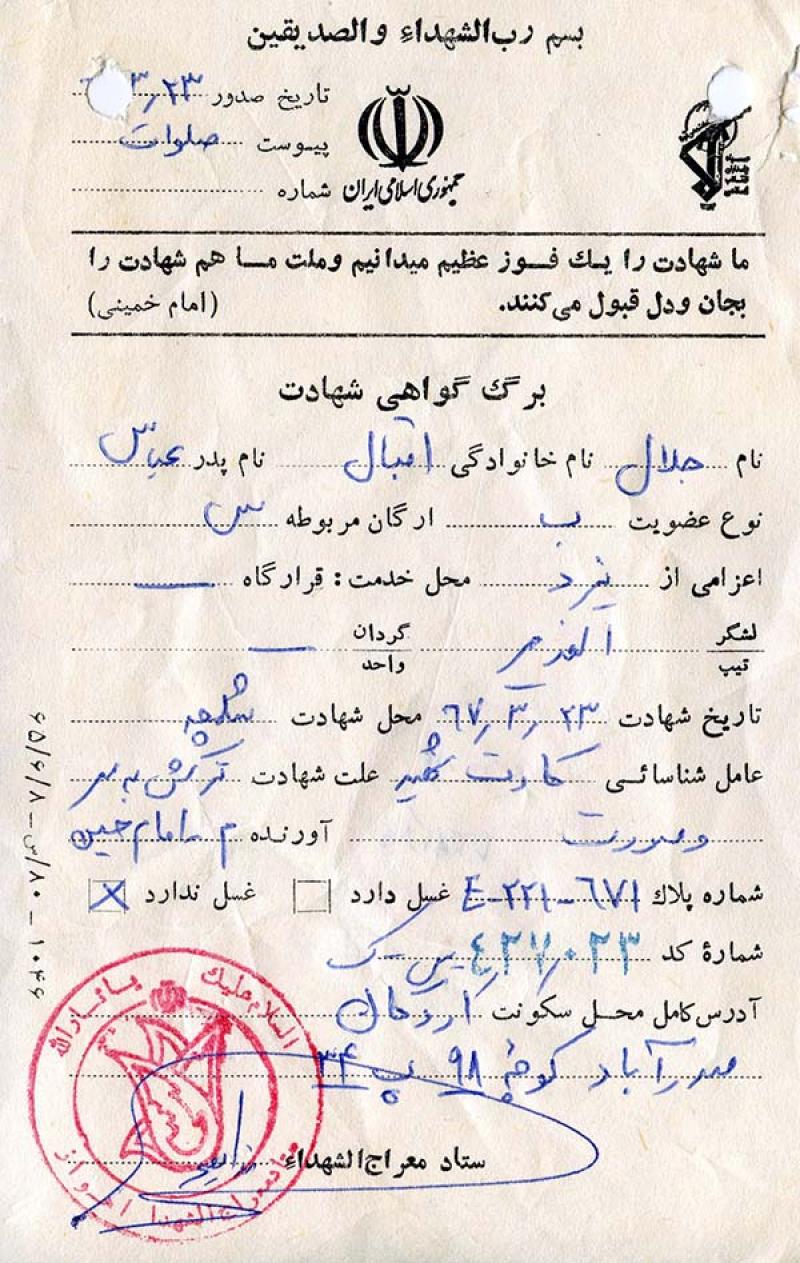 بسم رب الشهداء والصدیقین
تاریخ صدور ۳٫۲۳
پیوست صلوات
شماره
جمهوری اسلامی ایران
ما شهادت را یك فوز عظیم میدانیم وملت ما هم شهادت را
بجان ودل قبول می‌کنند. (امام خمینی)
برگ گواهی شهادت
نام جلال نام خانوادگی اقبال نام پدر عباس
نوع عضویت ب ارگان مربوطه س
اعزامی از یزد محل خدمت: قرارگاه —
لشگر
تیپ
گردان
واحد —
تاریخ شهادت ۶۷٫۳٫۲۳ محل شهادت شلمچه
عامل شناسائی کارت علت شهادت ترکش به سر
وصورت آورنده م-امام حسین
شماره پلاك E-۲۲۱-۶۷۱ غسل دارد غسل ندارد X
شمارهٔ کد ۴۲۷۰۲۳
آدرس کامل محل سکونت
کوچه ۹۸ پ ۳۴
ستاد معراج الشهداءِ
السلام علیك یا ثارالله
معراج الشهداء اهواز
۶۵/۶/۸ – س/۸۰ – ۱۰۴۶